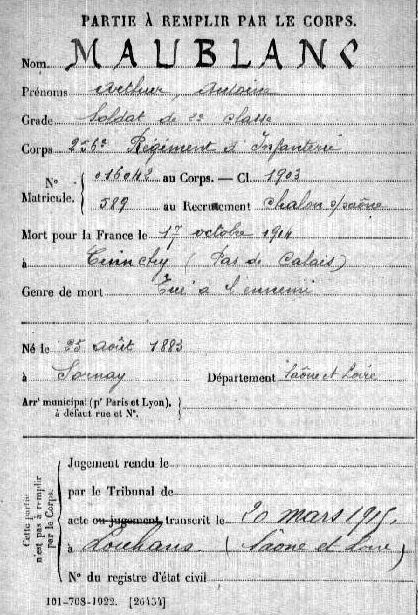 PARTIE À REMPLIR PAR LE CORPS.
Nom. MAUBLANC
Prénoms Arthur, Antoine
Grade Soldat de 2e classe
Corps 256e Régiment d'Infanterie
N° Matricule. 016042 au Corps. — Cl. 1903
589 au Recrutement Chalon s/saône
Mort pour la France le 17 octobre 1914
à Cuinchy (Pas de Calais)
Genre de mort Tué à l'ennemi
Né le 25 août 1883
à Sornay Département Saône et Loire
Arrt municipal (pr Paris et Lyon),
à défaut rue et N°.
Cette partie n'est pas à remplir par le Corps.
Jugement rendu le
par le Tribunal de
acte ou jugement transcrit le 20 mars 1915
à Louhans (Saône et Loire)
N° du registre d'état civil
101-708-1922. [26434]